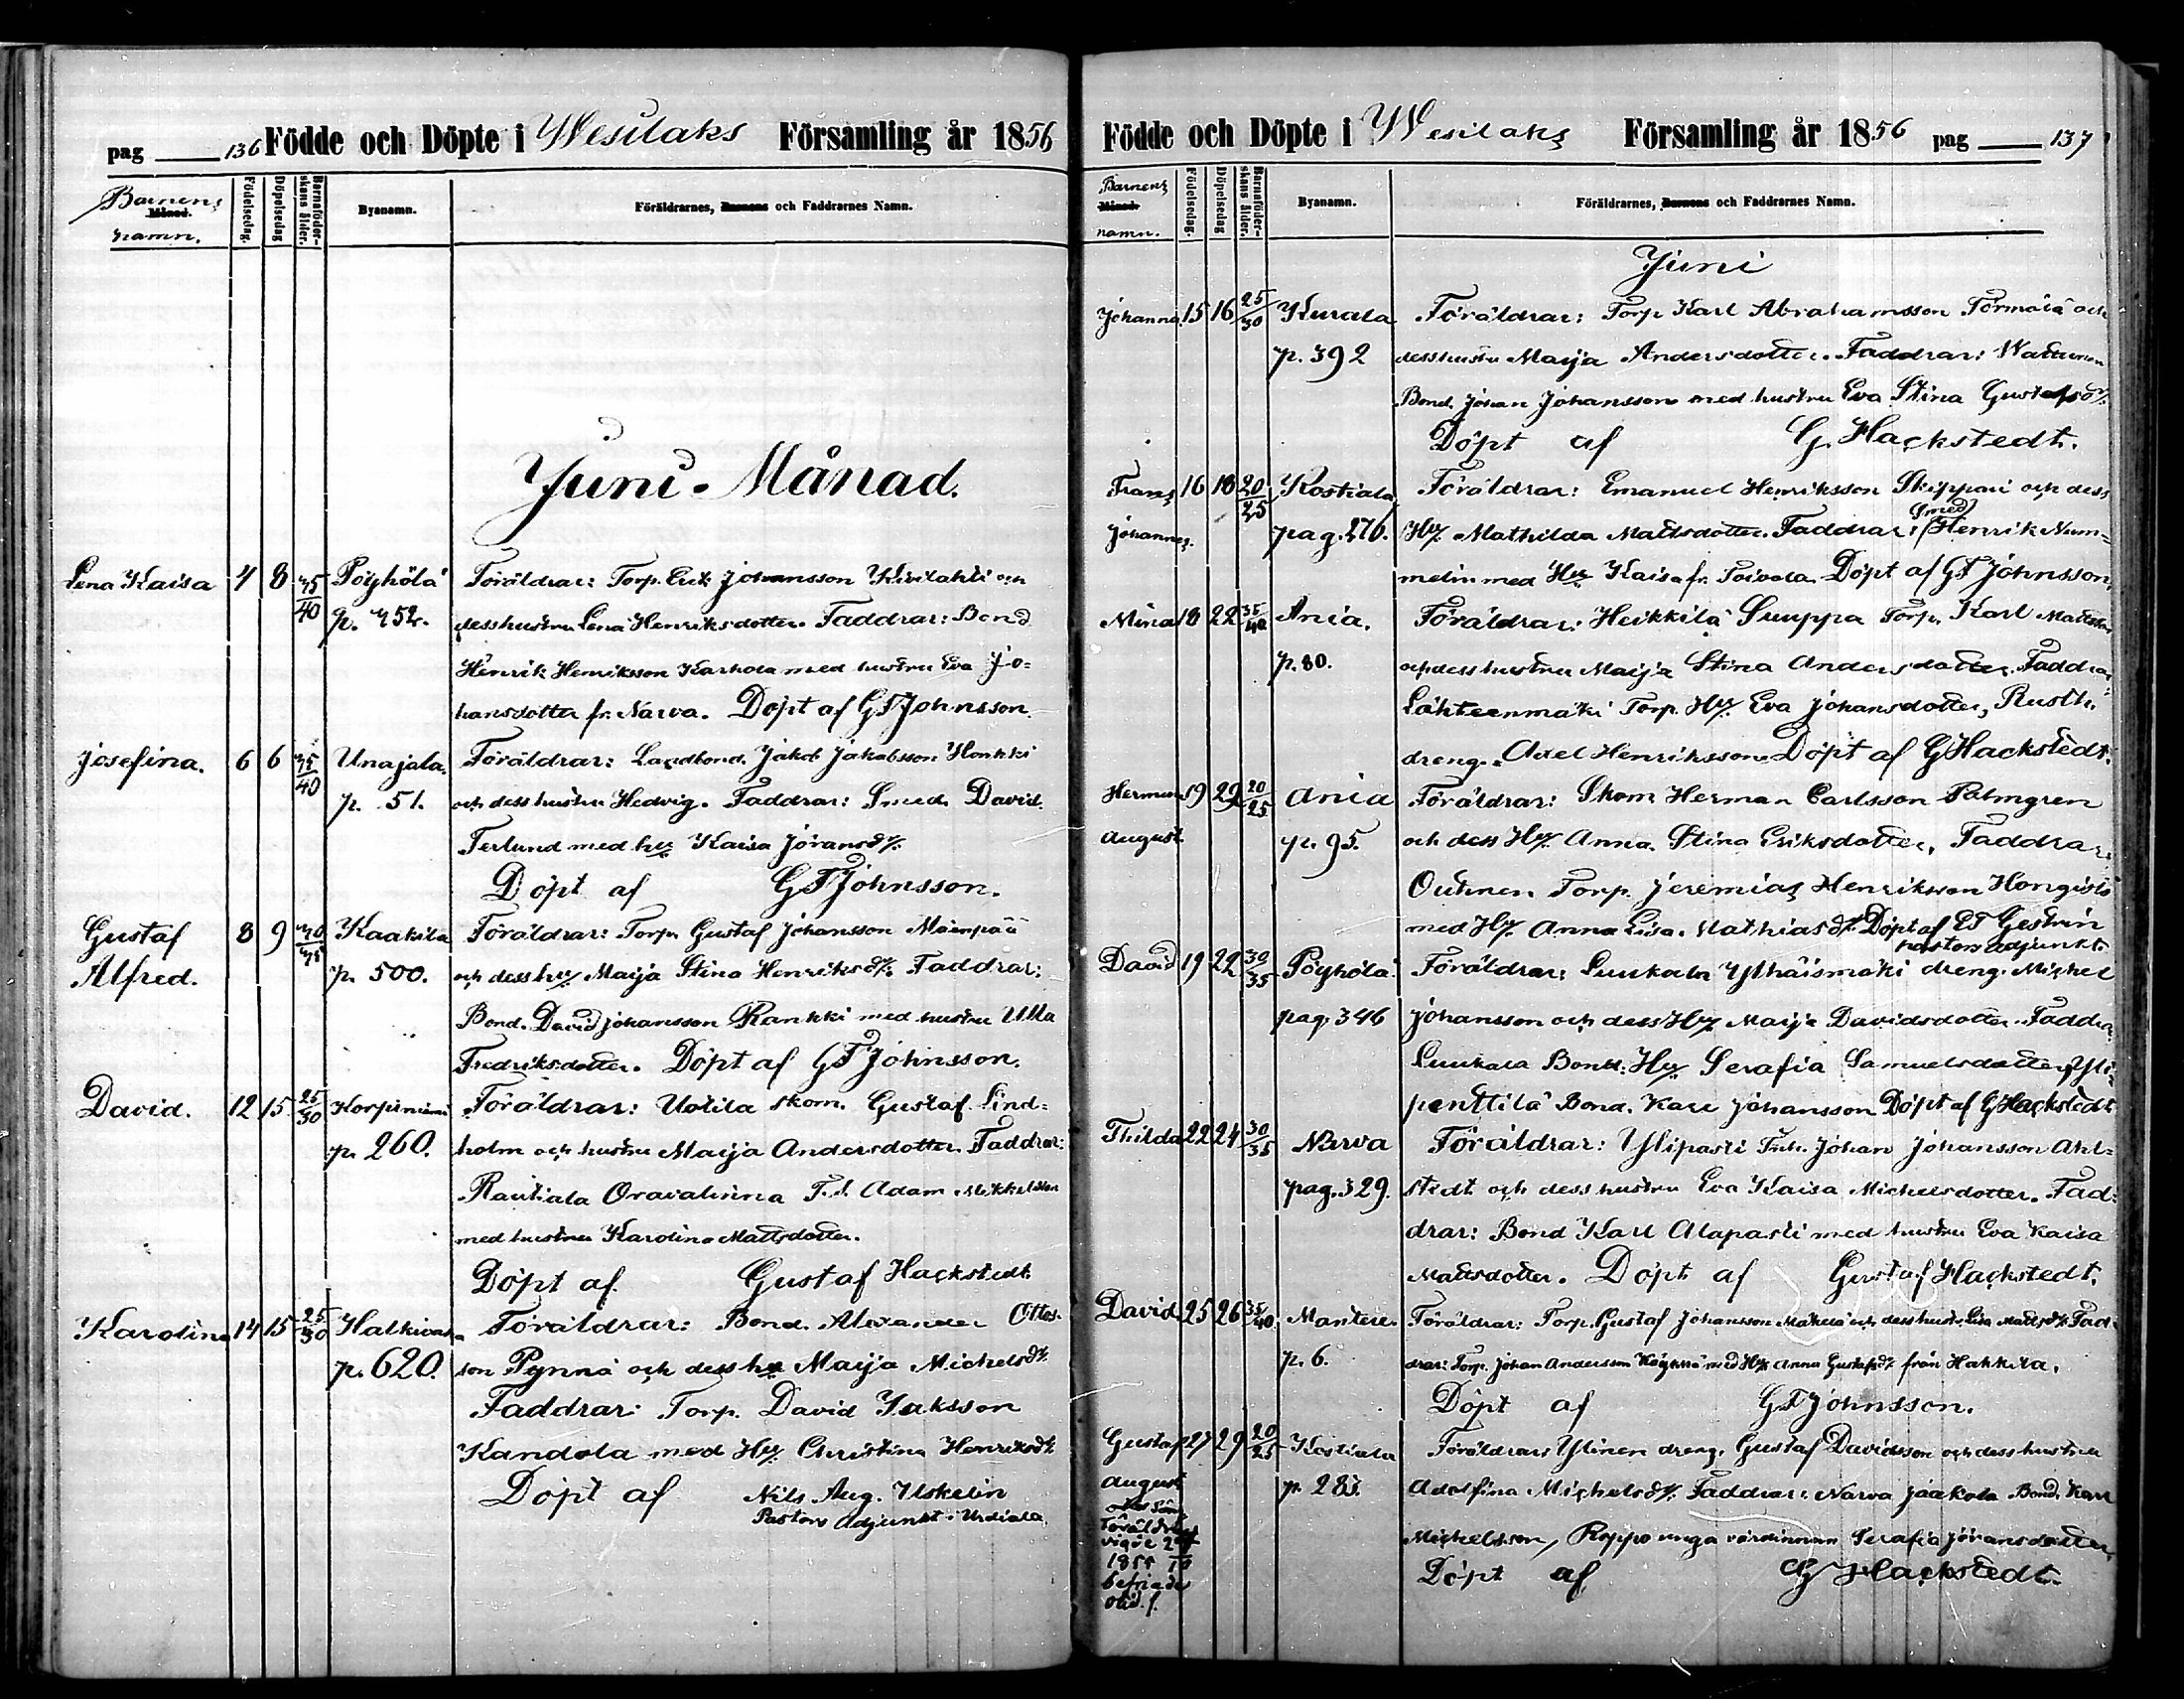 pag 136 Födde och Döpte i Wesilaks Församling år 1856
Barnens Månad. namn.
Födelsedag.
Döpelsedag
Barnaföderskans ålder.
Byanamn.
Föräldrarnes, Barnens och Faddrarnes Namn.
Juni-Månad.
Lena Kaisa 4 8 35/40 Pöyhölä Föräldrar: Torp. Erik Johansson Kivilahti och
p. 352. dess hustru Lena Henriksdotter. Faddrar: Bond
Henrik Henriksson Karhola med hustru Eva Jo=
hansdotter fr. Narva. Döpt af GFJohnsson.
Josefina. 6 6 35/40 Unajala. Föräldrar: Landbond. Jakob Jakobsson Honkki
p. 51. och dess hustru Hedvig. Faddrar: Smed David
Terlund med hu Kaisa Jöransdr.
Döpt af GFJohnsson.
Gustaf 8 9 Kaakila Föräldrar: Torp. Gustaf Johansson Mäenpää
Alfred. p. 500. och dess hu Maija Stina Henriksdr. Faddrar:
Bond. David Johansson Rankki med hustru Ulla
Fredriksdotter. Döpt af GFJohnsson.
David. 12 15 25/30 Korpiniemi Föräldrar: Uotila skom. Gustaf Lind=
p. 260. holm och hustru Maija Andersdotter. Faddrar:
Rautiala Oravalinna T.d. Adam Mikkelsson
med hustru Karolina Mattsdotter.
Döpt af Gustaf Hackstedt
Karolina 14 15 25/30 Halkivaha Föräldrar: Bond. Alexander Ottos-
p. 620. son Pynnä och dess hu Maija Michelsdr.
Faddrar: Torp. David Isaksson
Kandola med Hu Christina Henriksdr.
Döpt af Nils Aug. Uskelin
Pastors Adjunkt i Urdiala
Födde och Döpte i Wesilaks Församling år 1856 pag 137
Barnens Månad. namn.
Födelsedag.
Döpelsedag
Barnaföderskans ålder.
Byanamn.
Föräldrarnes, Barnens och Faddrarnes Namn.
Juni
Johanna 15 16 25/30 Kurala Föräldrar: Torp Karl Abrahamsson Törmälä och
p. 392 dess hustru Maija Andersdotter. Faddrar:
Bond. Johan Johansson med hustru Eva Stina Gustafsdr.
Döpt af G. Hackstedt.
Frans 16 18 20/25 Kostiala Föräldrar: Emanuel Henriksson Skippari och dess
Johannes. pag. 270. Hu Mathilda Mattsdotter. Faddrar: Smed Henrik Num=
melin med Hu Kaisa fr. Toivola. Döpt af GFJohnsson.
Mina 18 22 35/40 Ania. Föräldrar: Heikkilä Suuppa Torp. Karl Mattsson
p. 80. och dess hustru Maija Stina Andersdotter. Faddrar:
Lähteenmäki Torp. Hu Eva Johansdotter, Rusth.
dreng. Axel Henriksson. Döpt af GHackstedt.
Herman 19 22 20/25 Ania Föräldrar: Skom Herman Carlsson Palmgren
August. p. 95. och dess Hu Anna Stina Eriksdotter. Faddrar:
Outinen Torp. Jeremias Henriksson Hongisto
med Hu Anna Lisa Mathiasdr. Döpt af Gestrin
pastors adjunkt.
David 19 22 30/35 Pöyhölä Föräldrar: Luukala Ylhäismäki dreng. Michel
pag. 346 Johansson och dess Hu Maija Davidsdotter. Faddrar
Luukala Bond. Hu Serafia Samuelsdotter, Yli=
penttilä Bond. Karl Johansson Döpt af GHackstedt
Thilda 22 24 30/35 Narva Föräldrar: Ylipasti Johan Johansson Ahl=
pag. 329. stedt och dess hustru Eva Kaisa Michelsdotter. Fad=
drar: Bond Karl Alapasti med hustru Eva Kaisa
Mattsdotter. Döpt af Gustaf Hackstedt.
David 25 26 35/40 Mantere. Föräldrar: Torp. Gustaf Johansson Mäkelä och dess hustr. Lisa Mattsdr. Fad=
p. 6. drar: Torp. Johan Andersson med Hu Anna Gustafsdr. från Hakkila.
Döpt af GFJohnsson.
Gustaf 27 29 20/25 Kostiala Föräldrar: Ylinen dreng. Gustaf Davidsson och dess hustru
August p. 283. Adolfina Michelsdr. Faddrar: Narva Jaakola Bond. Karl
Michelsson, Roppo unga värdinnan Serafia Jöransdotter.
Döpt af G Hackstedt.
Föräldrar
1855